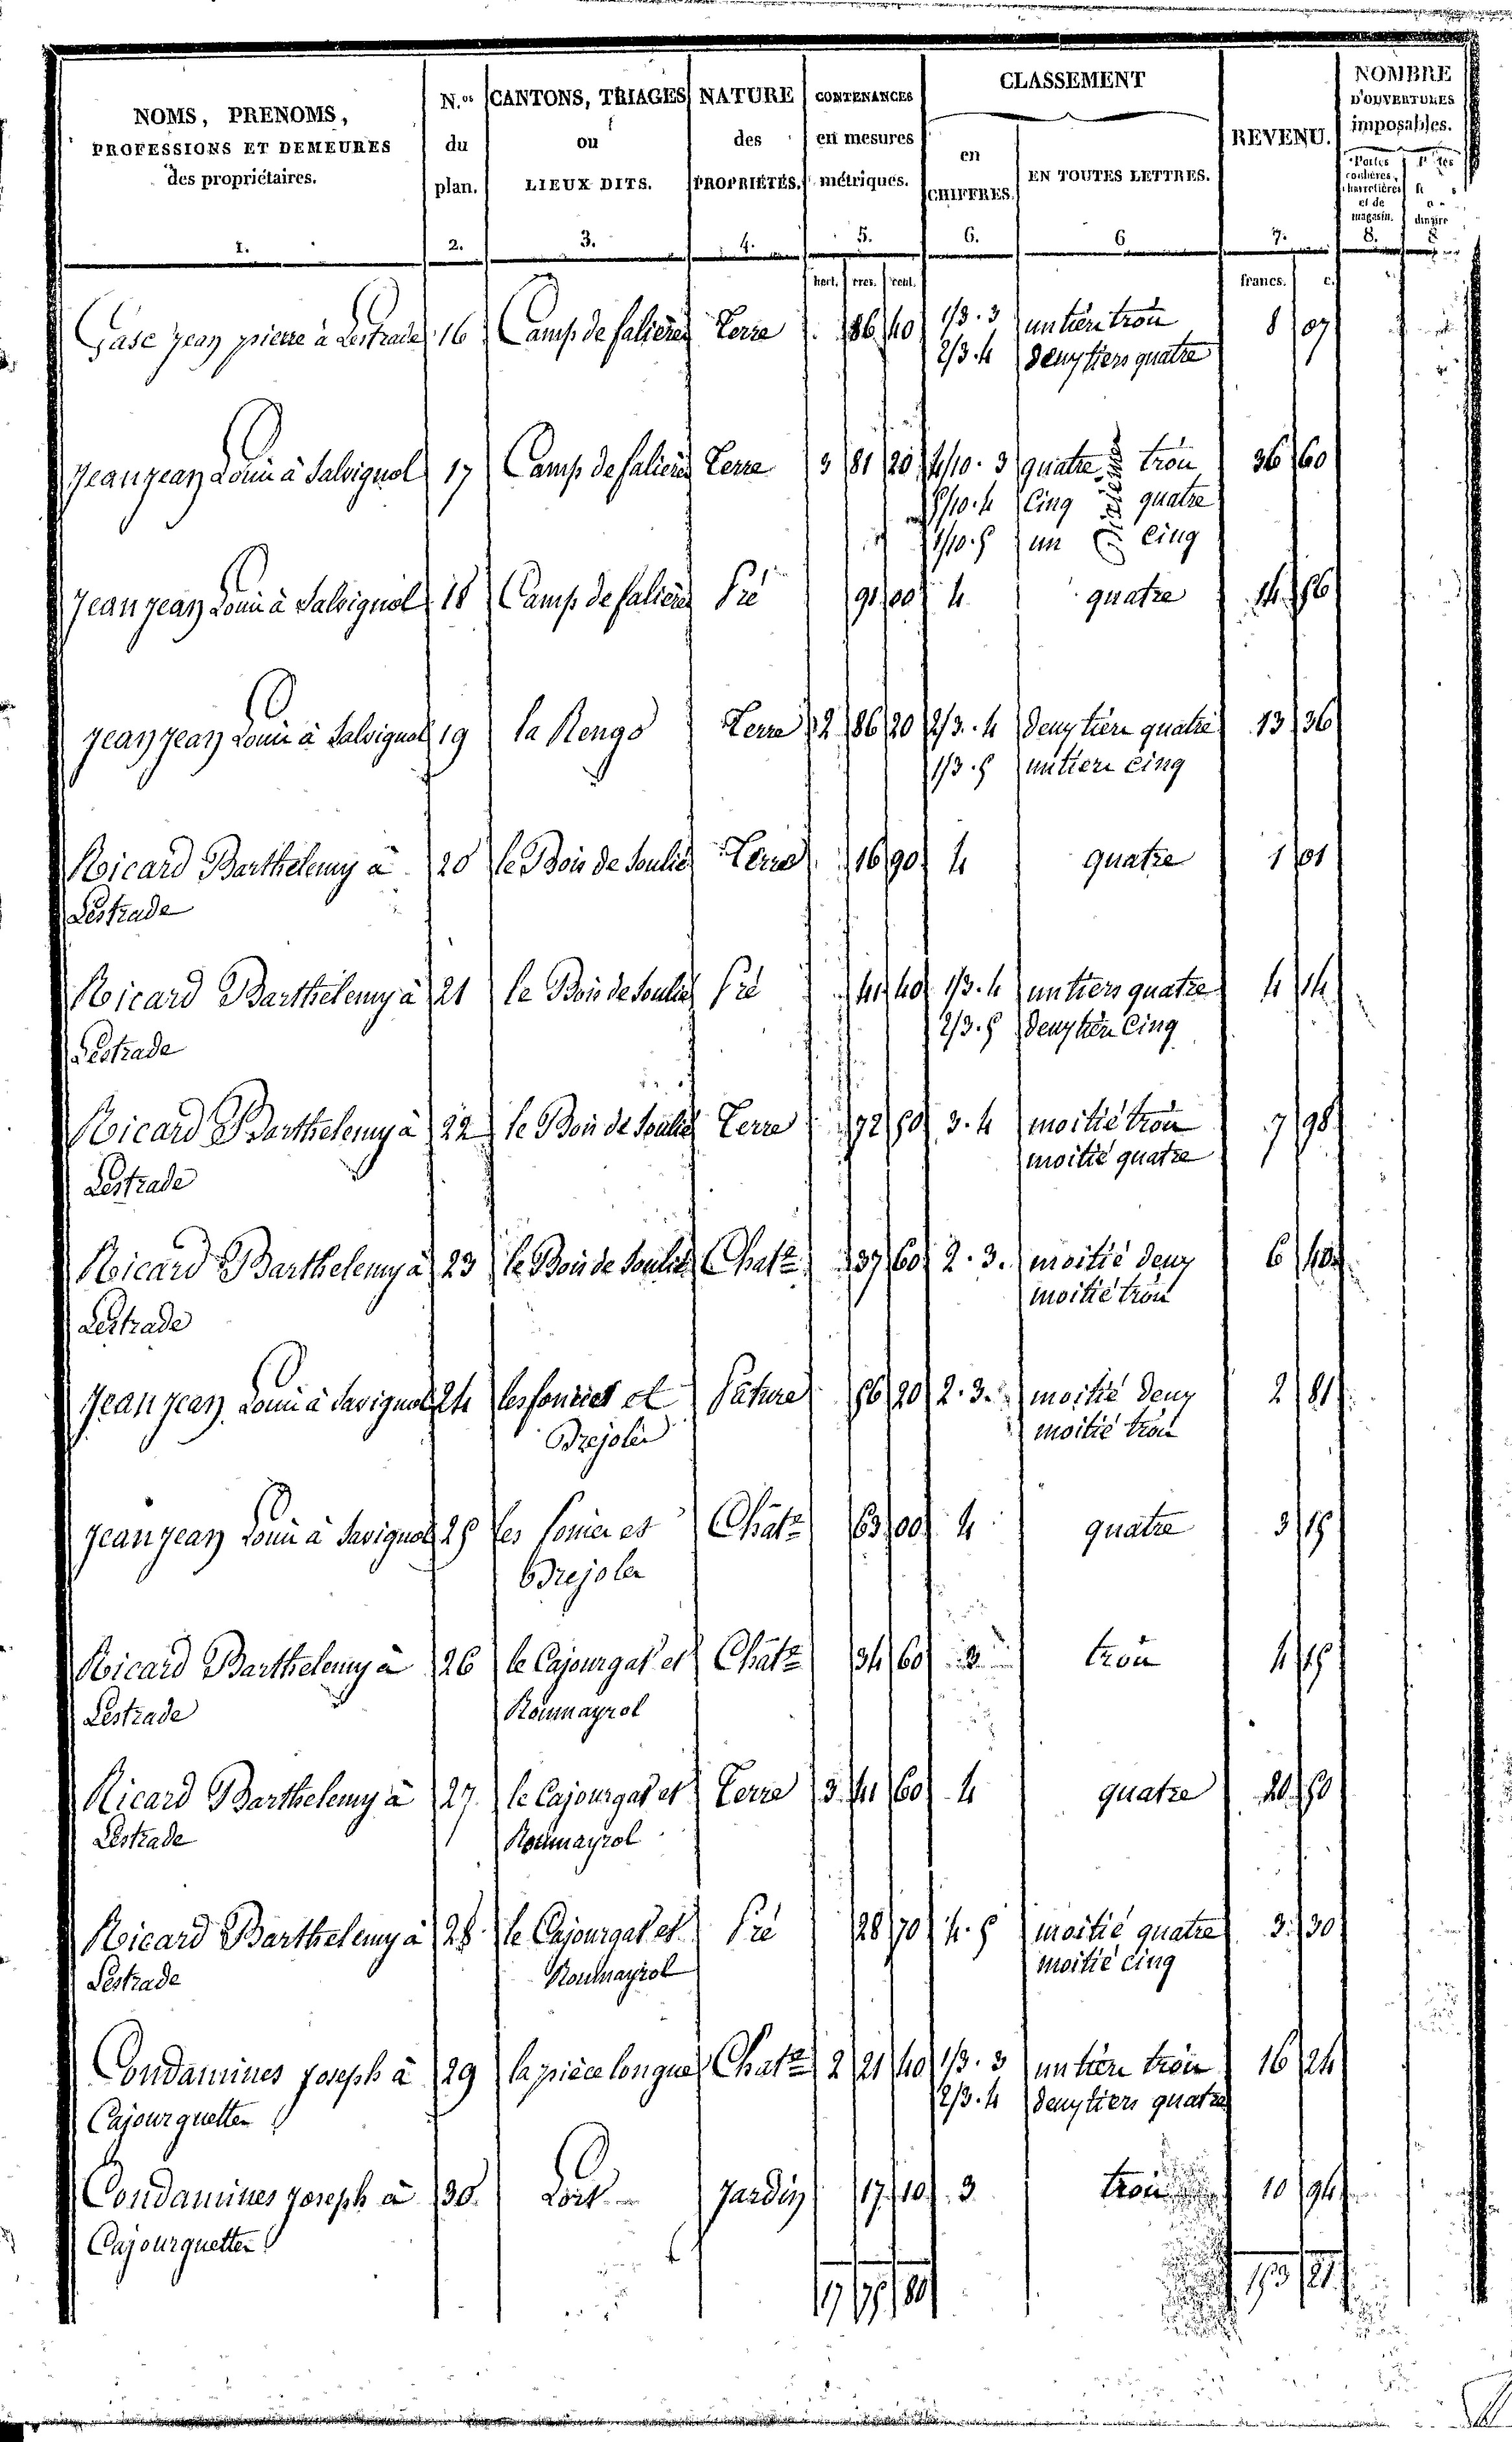 NOMS, PRENOMS,
PROFESSIONS ET DEMEURES
des propriétaires.
1.
N.os
du
plan.
2.
CANTONS, TRIAGES
ou
LIEUX DITS.
3.
NATURE
des
PROPRIÉTÉS.
4.
CONTENANCES
en mesures
métriques.
5.
CLASSEMENT
en
CHIFFRES.
6.
EN TOUTES LETTRES.
6
REVENU.
7.
NOMBRE
D'OUVERTURES
imposables.
Portes
cochères,
charretières
et de
magasin.
8.
hect. ares. cent. francs. c.
jean pierre à Lestrade 16 Camp de salieres Terre 86 40 1/3. 3 un tiers trois 8 07
2/3. 4 deux tiers quatre
Jeanjean Louis à Salvignol 17 Camp de salieres Terre 3 81 20 4/10. 3 quatre dixiemes trois 36 60
5/10. 4 cinq quatre
1/10. 5 un cinq
Jeanjean Louis à Salvignol 18 Camp de salieres Pré 91 00 4 quatre 14 56
Jeanjean Louis à Salvignol 19 la Rengo Terre 2 86 20 2/3. 4 deux tiers quatre 13 36
1/3. 5 un tiers cinq
Ricard Barthelemy à 20 le Bois de Soulié Terre 16 90 4 quatre 1 01
Lestrade
Ricard Barthelemy à 21 le Bois de Soulié Pré 41 40 1/3. 4 un tiers quatre 4 14
Lestrade 2/3. 5 deux tiers cinq
Ricard Barthelemy à 22 le Bois de Soulié Terre 72 50 3. 4 moitié trois 7 98
Lestrade moitié quatre
Ricard Barthelemy à 23 le Bois de Soulié Chat.re 37 60 2. 3. moitié deux 6 40
Lestrade moitié trois
Jeanjean Louis à Savignol 24 les et Pature 56 20 2. 3. moitié deux 2 81
Brejoles moitié trois
Jeanjean Louis à Savignol 25 les et Chat.re 63 00 4 quatre 3 15
Brejoles
Ricard Barthelemy à 26 le Cajourgat et Chat.re 34 60 3 trois 4 15
Lestrade Roumayrol
Ricard Barthelemy à 27 le Cajourgat et Terre 3 41 60 4 quatre 20 50
Lestrade Roumayrol
Ricard Barthelemy à 28 le Cajourgat et Pré 28 70 4. 5 moitié quatre 3 30
Lestrade Roumayrol moitié cinq
Condamines Joseph à 29 la pièce longue Chat.re 2 21 40 1/3. 3 un tiers trois 16 24
Cajourguettes 2/3. 4 deux tiers quatre
Condamines Joseph à 30 Lort Jardin 17 10 3 trois 10 94
Cajourguettes
153 21